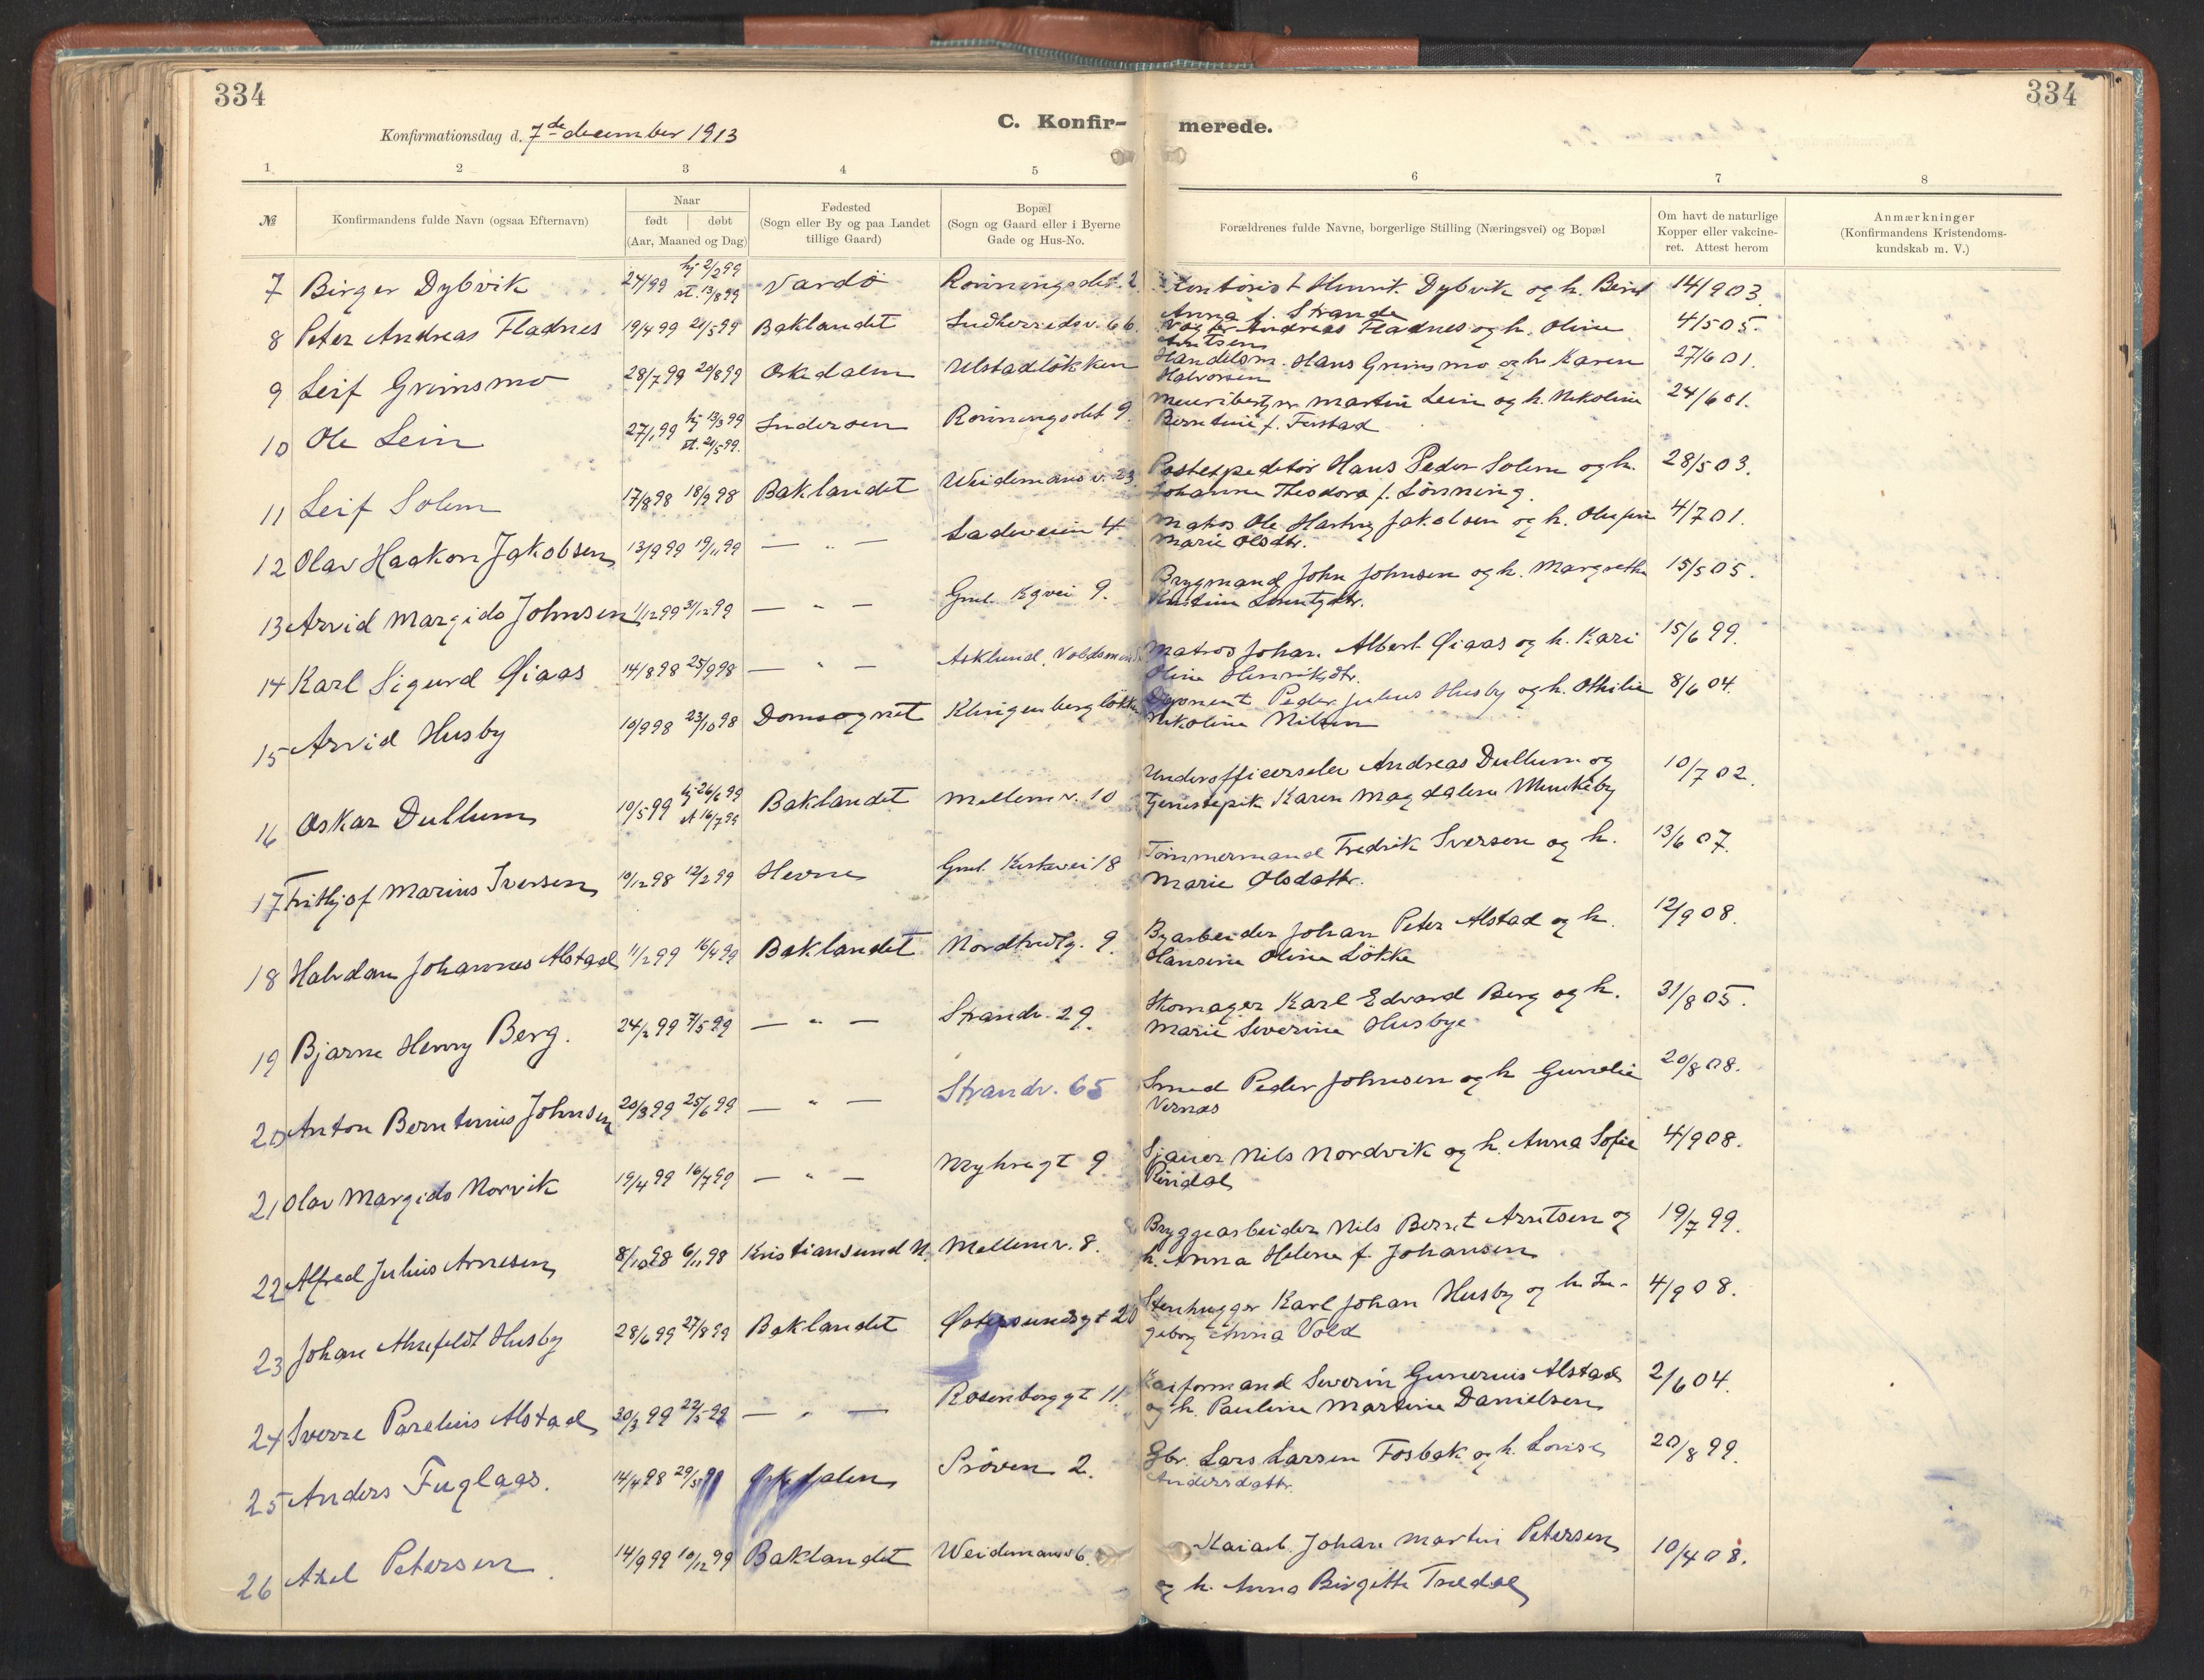 334
334
Konfirmationsdag d. 7de december 1913
C. Konfir-
merede.
1 2 3 4 5 6 7 8
№
Konfirmandens fulde Navn (ogsaa Efternavn)
Naar
født døbt
(Aar, Maaned og Dag)
Fødested
(Sogn eller By og paa Landet
tillige Gaard)
Bopæl
(Sogn og Gaard eller i Byerne
Gade og Hus-No.
Forældrenes fulde Navne, borgerlige Stilling (Næringsvei) og Bopæl
Om havt de naturlige
Kopper eller vakcine-
ret. Attest herom
Anmærkninger
(Konfirmandens Kristendoms-
kundskab m. V.)
7 Birger Dybvik 24/99 hj 2/2 99 st. 13/8 99 Vardö Rönningsslet. 2 Kontorist Henrik Dybvik og h. Berit 14/9 03.
Anna f. Strande
8 Peter Andreas Fladnes 19/4 99 21/5 99 Baklandet Indherredsv. 66 Andreas Fladnes og h. Oline 4/5 05.
Arntsen
9 Leif Grimsmo 28/7 99 20/8 99 Orkedalen Ulstadlökken Handelsm. Hans Grimsmo og h. Karen 27/6 01.
Halvorsen
10 Ole Lein 27/1 99 hj 13/3 99 st. 21/5 99. Inderøen Rönningsslet 9. Meieribestyrer Martin Lein og h. Nikoline 24/6 01.
Berntine f.
11 Leif Solem 17/8 98 18/9 98 Baklandet Weidemansv. 23. Postexpeditör Hans Peder Solem og h. 28/5 03.
Johanna Theodora f. Lönning.
12 Olav Haakon Jakobsen 13/9 99 19/11 99 — " — Ladeveien 4. Matros Ole Hartvig Jakobsen og h. 4/7 01.
Marie Olsdtr.
13 Arvid Margido Johnsen 1/12 99 31/12 99 — " — Gml. Kgvei 9. Brygmand John Johnsen og h. Margrethe 15/5 05.
14 Karl Sigurd Qiaas 14/8 98 25/9 98 — " — Asklund, Matros Johan Albert Qiaas og h. Kari 15/6 99.
Oline Henriksdtr.
15 Arvid Husby 10/9 98 23/10 98 Domsognet Klingenberglökken Peder Julius Husby og h. Othilie 8/6 04.
Nikoline Nilsen
16 Oskar Dullum 10/5 99 hj 26/6 99 st 16/7 99 Baklandet Mellemv. 10 Underofficerselev Andreas Dullum og 10/7 02.
Tjenestepik Karen Magdalena Munkeby
17 Frithjof Marius Iversen 10/12 98 12/2 99 Hevne Gml. Kirkevei 18 Tömmermand Fredrik Iversen og h. 13/6 07.
Marie Olsdattr.
18 Halvdan Johannes Alstad 11/2 99 16/4 99 Baklandet 9. Byarbeider Johan Peter Alstad og h. 12/9 08.
Hansine Oline Lökke
19 Bjarne Henry Berg. 24/2 99 7/5 99 — " — Strandv. 29. Skomager Karl Edvard Berg og h. 31/8 05.
Marie Severine Husbye
20 Anton Berntinius Johnsen 20/3 99 25/6 99 — " — Strandv. 65 Smed Peder Johnsen og h Gunelie 20/8 08.
Vernæs
21 Olav Margido Norvik 19/4 99 16/7 99 — " — Nyhavgt 9 Sjauer Nils Nordvik og h. Anna Sofie 4/9 08.
Rindal
22 Alfred Julius Arnesen 8/10 98 6/11 98 Kristiansund N. Mellemv. 8. Bryggearbeider Nils Bernt Arntsen og 19/7 99.
h. Anna Helene f. Johansen
23 Johan Ahnfeldt Husby 28/6 99 27/8 99 Baklandet Østersundsgt 20 Stenhugger Karl Johan Husby og h. In- 4/9 08.
geborg Anna Vold
24 Sverre Parelius Alstad 30/3 99 22/5 99 — " — Rosenborggt 11. Kaiformand Severin Gunerius Alstad 2/6 04.
og h. Pauline Martine Danielsen
25 Anders Fuglaas. 14/4 98 29/5 Orkedalen Pröven 2. Gbr. Lars Larsen Fosbak og h. Lovise 20/8 99.
Andersdattr.
26 Axel Petersen. 14/9 99 10/12 99 Baklandet Weidemansv 6. Kaiarb. Johan Martin Petersen 10/4 08.
og h. Anna Birgitte Trædal